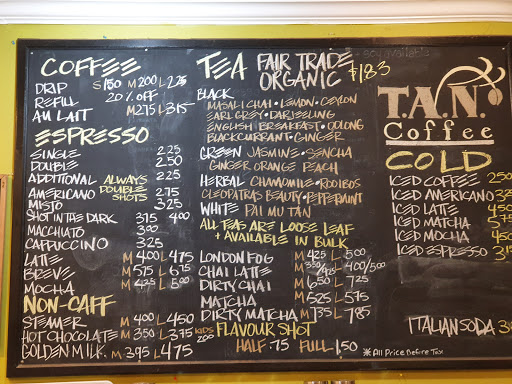 COFFEE
DRIP S 1.50 M 2.00 L 2.25
REFILL 20% OFF
AU LAIT M 2.75 L 3.15
ESPRESSO
SINGLE 2.25
DOUBLE 2.50
ADDITIONAL ALWAYS DOUBLE SHOTS .225
AMERICANO 2.75
MISTO 3.25
SHOT IN THE DARK 3.75 4.00
MACCHIATO 3.00
CAPPUCCINO 3.25
LATTE M 4.00 L 4.75
BREVE M 5.75 L 6.75
MOCHA M 4.25 L 5.00
NON-CAFF
STEAMER M 4.00 L 4.50
HOT CHOCOLATE M 3.50 L 3.75 KIDS 2.05
GOLDEN MILK M 3.95 L 4.75
TEA FAIR TRADE ORGANIC $1.83
BLACK
MASALI CHAI • LEMON • CEYLON
EARL GREY • DARJEELING
ENGLISH BREAKFAST • OOLONG
BLACKCURRANT • GINGER
GREEN JASMINE • SENCHA
GINGER ORANGE PEACH
HERBAL CHAMOMILE • ROOIBOS
CLEOPATRAS BEAUTY • PEPPERMINT
WHITE PAI MU TAN
ALL TEAS ARE LOOSE LEAF
+ AVAILABLE IN BULK
LONDON FOG M 4.25 L 5.00
CHAI LATTE 4.00/5.00
DIRTY CHAI M 6.50 L 7.25
MATCHA M 5.25 L 5.75
DIRTY MATCHA M 7.35 L 7.85
FLAVOUR SHOT
HALF .75 FULL 1.50
T.A.N.
Coffee
COLD
ICED COFFEE 2.50
ICED AMERICANO 3.25
ICED LATTE 4.50
ICED MATCHA 5.75
ICED MOCHA 4.50
ICED ESPRESSO 3.15
ITALIAN SODA
*All Price Before Tax